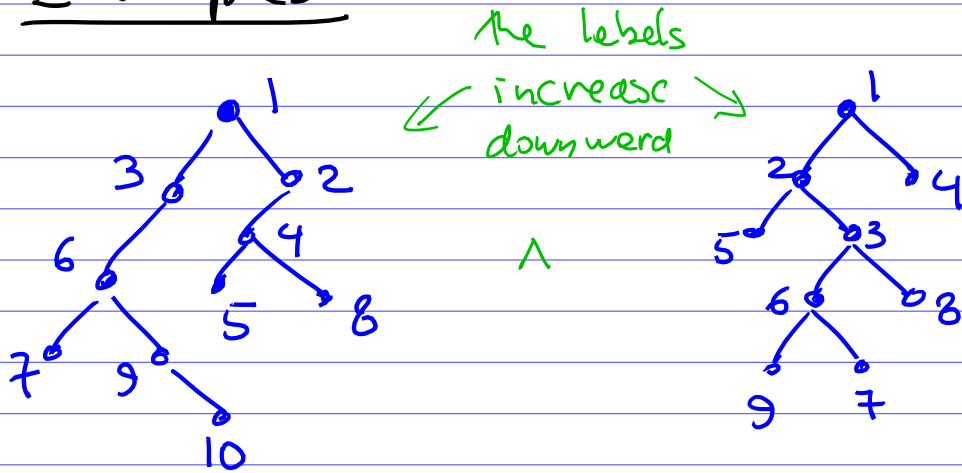 the labels
increase
downward
1
3
2
6
4
5
8
7
9
10
Λ
1
2
4
5
3
6
8
9
7